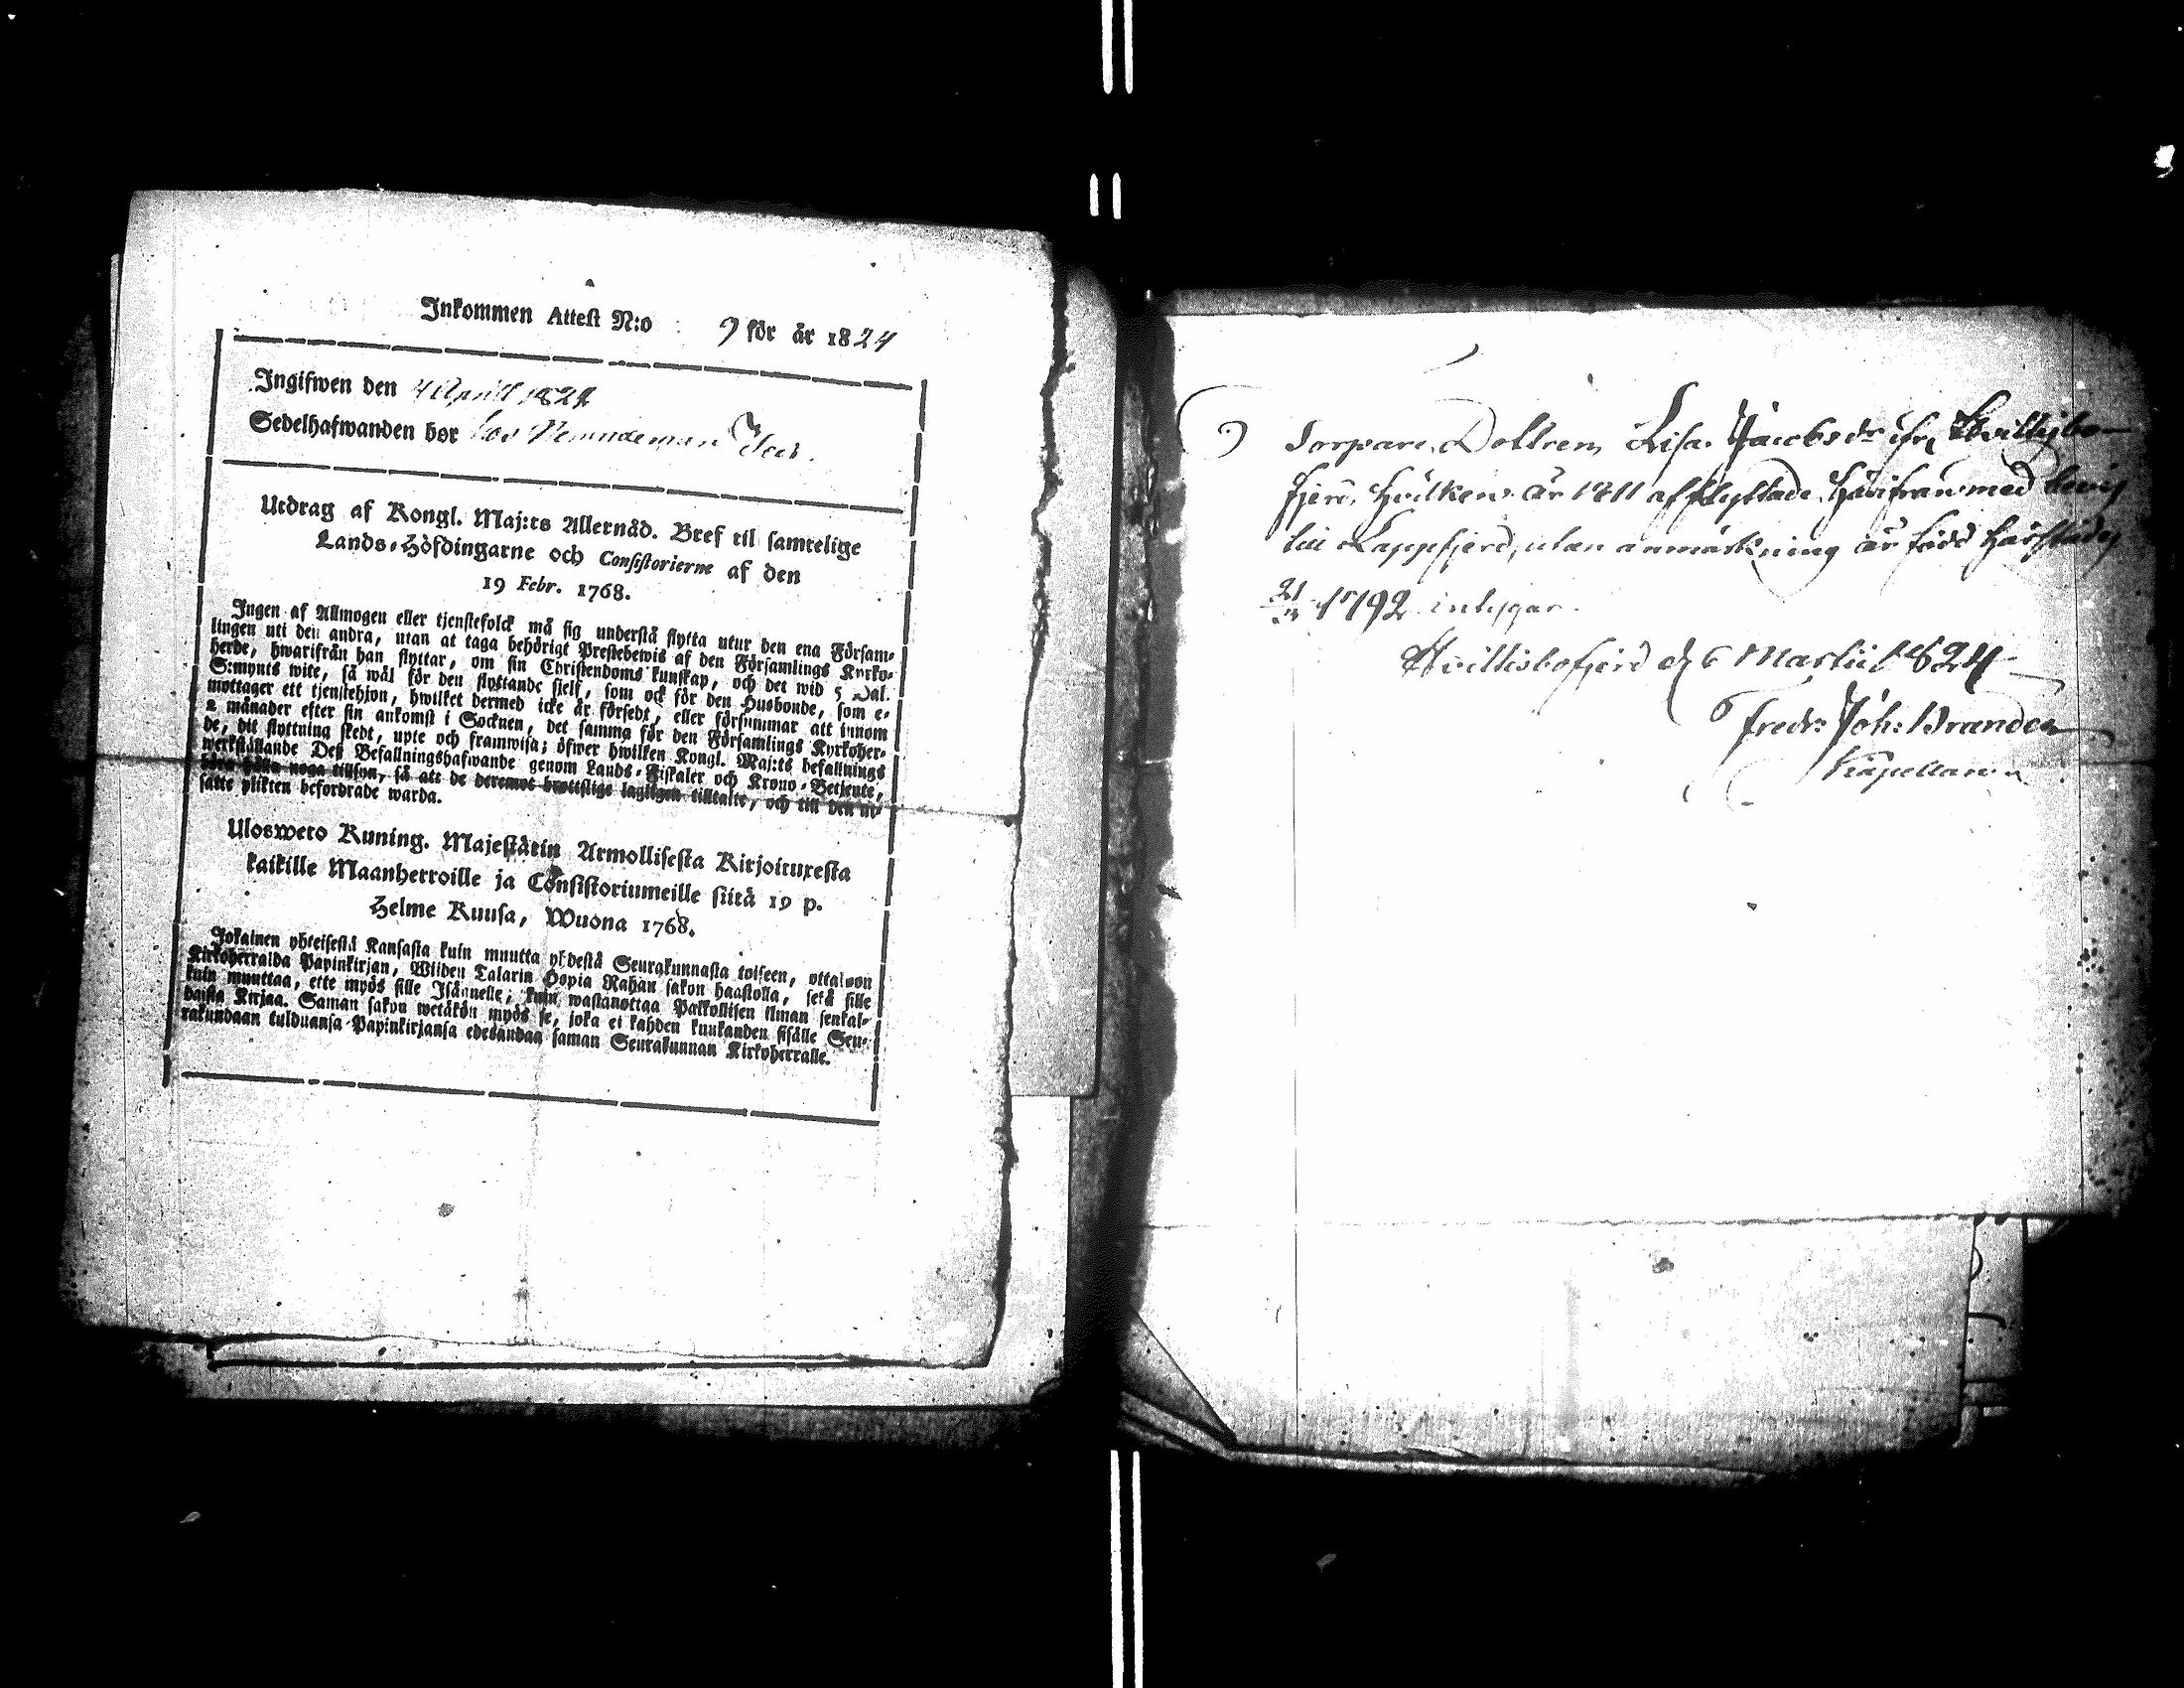 Inkommen Attest N:o 9 för år 1824
Ingifwen den 4 April 1824
Sedelhafwanden bor hos
Utdrag af Kongl. Maj:ts Allernåd. Bref til samtelige
Lands-Höfdingarne och Consistorierne af den
19 Febr. 1768.
Ingen af Allmogen eller tjenstefolck må sig understå flytta utur den ena Försam-
lingen uti den andra, utan at taga behörigt Prestebewis af den Församlings Kyrko-
herde, hwarifrån han flyttar, om sin Christendoms kunskap, och det wid 5 Dal.
S:mynts wite, så wäl för den flyttande sjelf, som ock för den Husbonde, som e-
mottager ett tjenstehjon, hwilket dermed icke är försedt, eller försummar att innom
2 månader efter sin ankomst i Socknen, det samma för den Församlings Kyrkoher-
de, dit flyttning skedt, upte och framwisa; öfwer hwilken Kongl. Maj:ts befallnings
werkställande Deß Befallningshafwande genom Lands-Fiskaler och Krono-Betjente,
böra hålla noga tillsyn, så att de deremot brottslige lagligen tilltalte, och till den ut-
satte plikten befordrade warda.
Uloswetо Kuning. Majestätin Armollisesta Kirjoituxesta
kaikille Maanherroille ja Consistoriumeille siitä 19 p.
Helme Kuusa, Wuona 1768.
Jokainen yhteisestä Kansasta kuin muutta yhdestä Seurakunnasta toiseen, ottakoon
Kirkoherralda Papinkirjan, Wiiden Talarin Hopia Rahan sakon haastolla, sekä sille
kuin muuttaa, ette myös sille Isännelle, kuin wastanottaa Palkollisen ilman senkal-
daista Kirjaa. Saman sakon wetäkön myös se, joka ei kahden kuukauden sisälle Seu-
rakundaan tulduansa Papinkirjansa edesandaa saman Seurakunnan Kirkoherralle.
9 Torpare Dottren Lisa Jacobsdr ifrån
fjerd, hvilken år 1811 afflyttade härifrån med
till Lappfjerd, utan anmärkning är född härstädes
21/3 1792 intygar.
Hvittisbofjerd d. 6 Martii 1824
Fredr: Joh: Brander
Kapellan